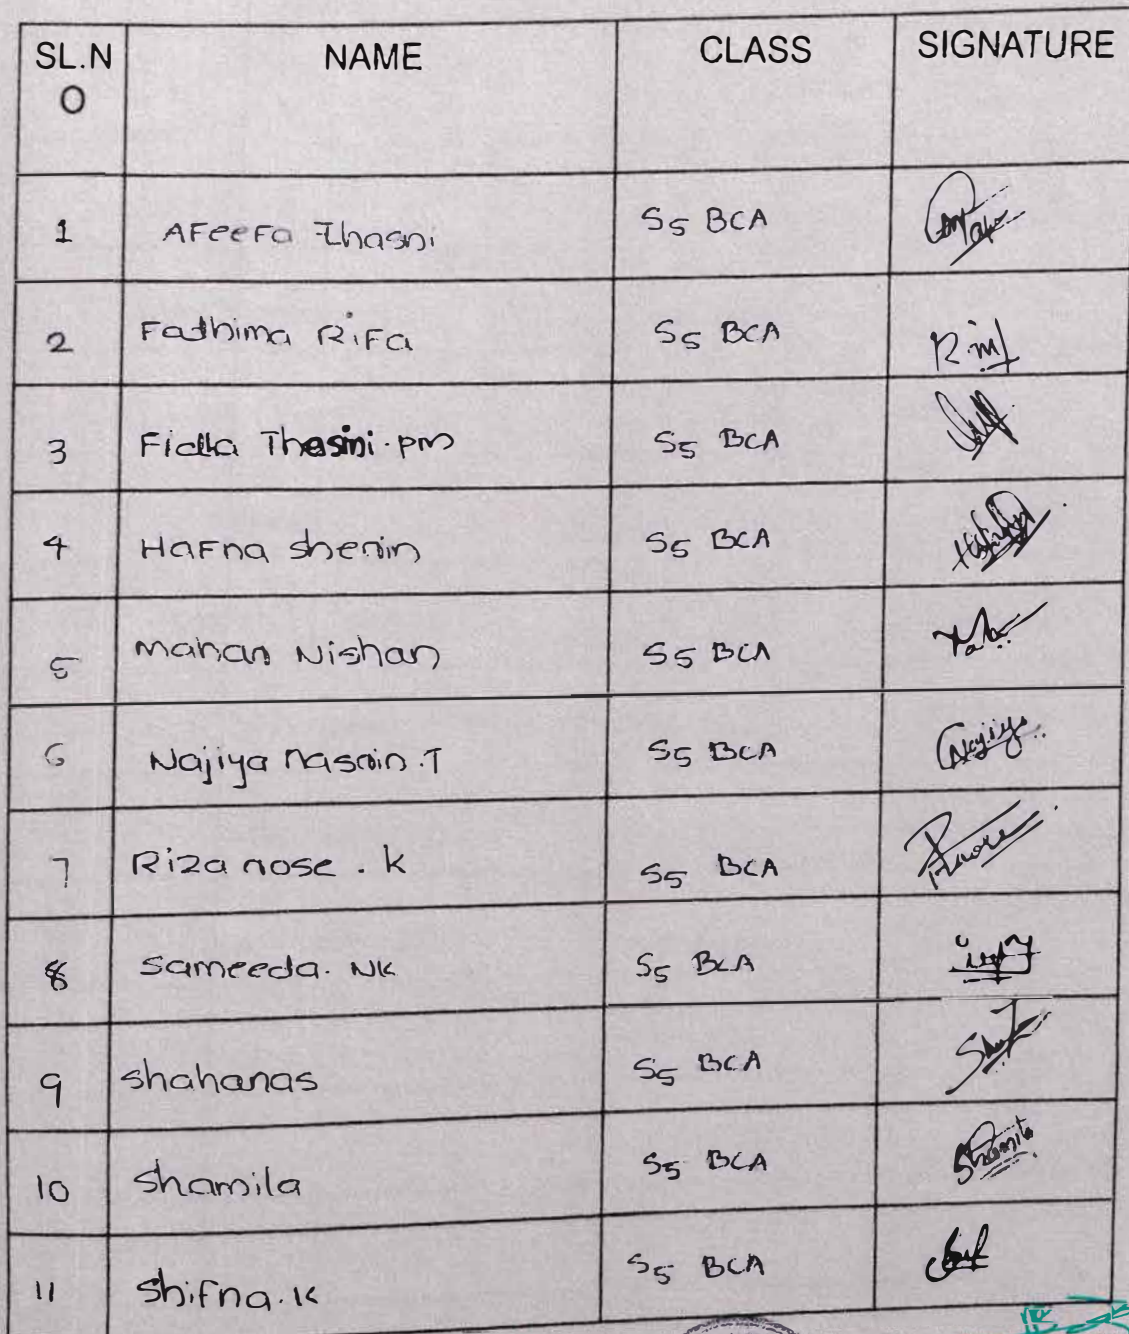 SL.N
O
NAME
CLASS
SIGNATURE
1 AFeeFa Thasni S5 BCA
2 Fathima RiFa S5 BCA
3 Fidha Thasini.pm S5 BCA
4 HaFna sherin S5 BCA
5 Mahan Nishan S5 BCA
6 Najiya nasrin.T S5 BCA Najiya
7 Riza rose.k S5 BCA
8 Sameeda.NK S5 BCA
9 shahanas S5 BCA
10 Shamila S5 BCA Shamila
11 Shifna.k S5 BCA